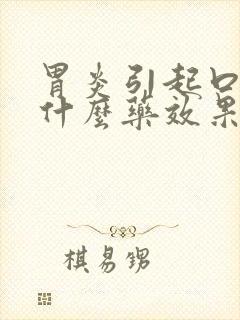 胃炎引起口
什麼藥效果
棋易甥